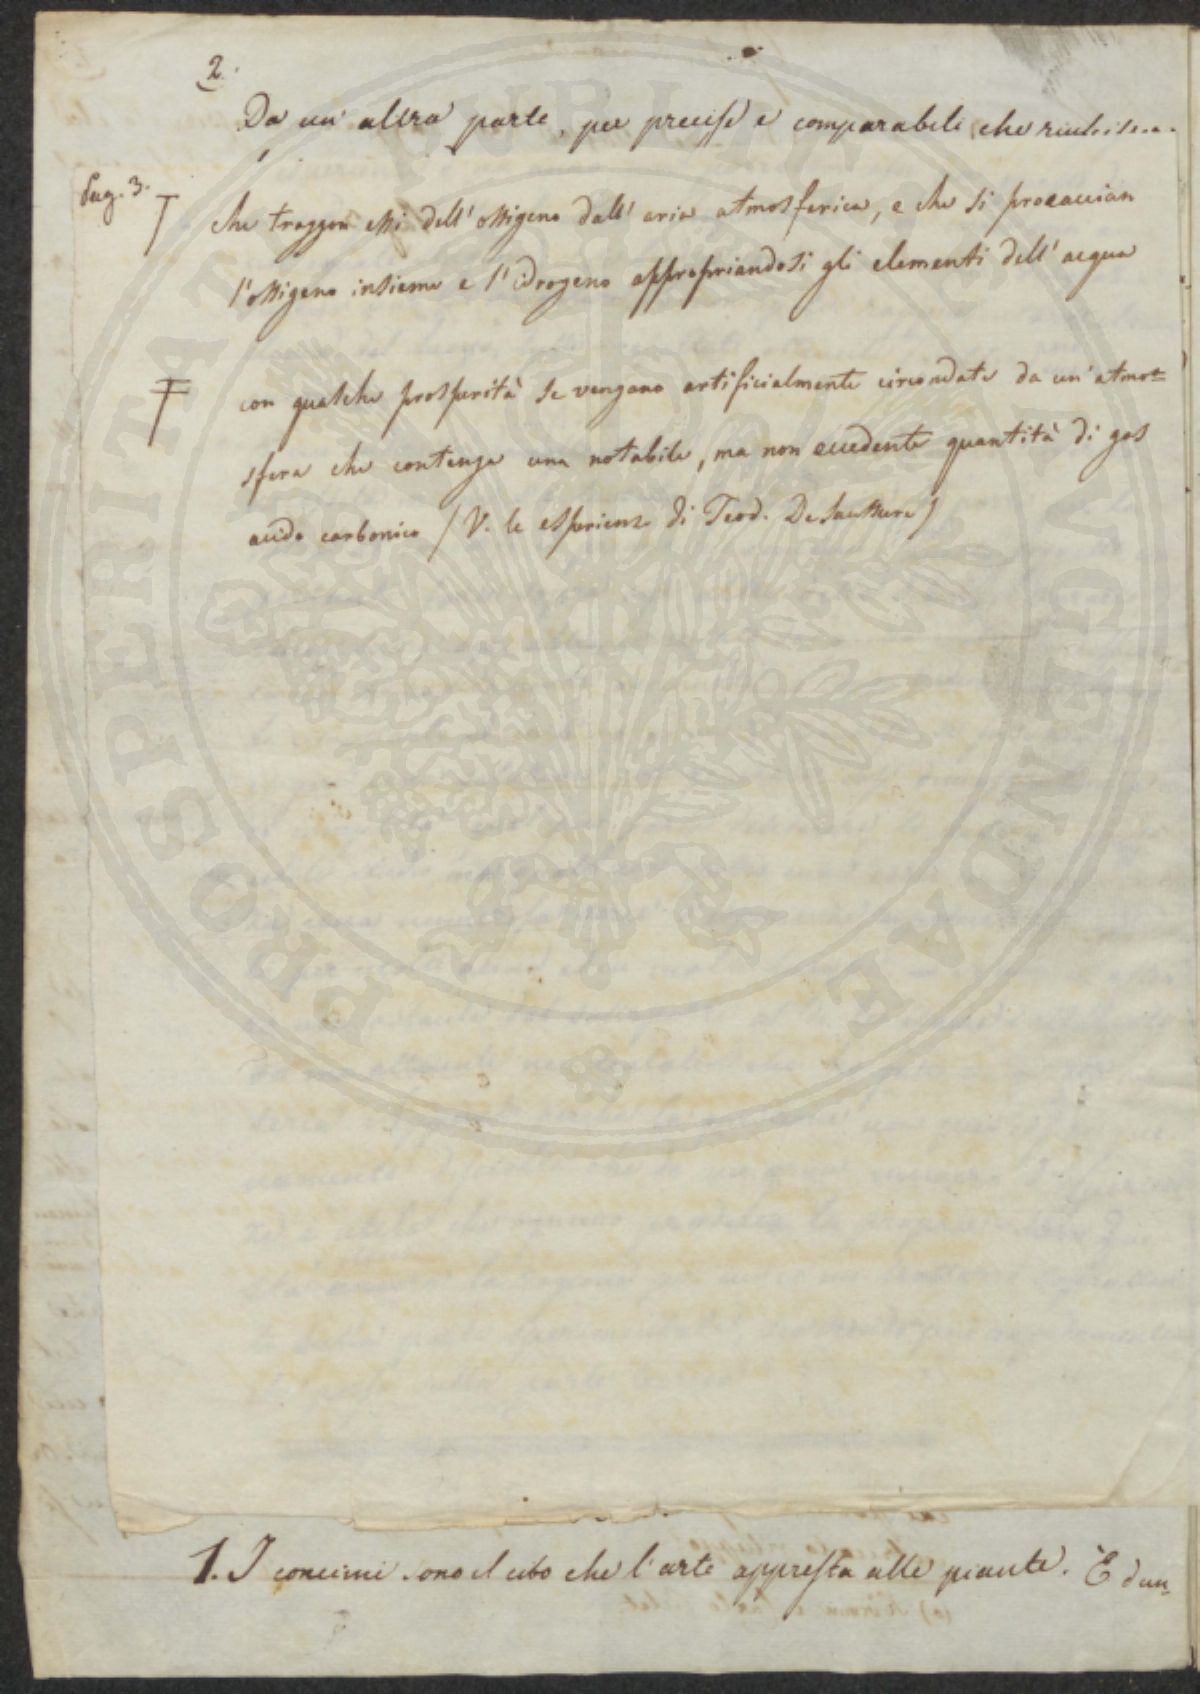 2.
Da un' altra parte, per precise e comparabili che
Pag. 3.
che traggon essi dell' ossigeno dall' aria atmosferica, e che si procaccian
l'ossigeno insieme e l'idrogeno appropriandosi gli elementi dell' acqua
con qualche prosperità se vengano artificialmente circondate da un' atmo=
sfera che contenga una notabile, ma non eccedente quantità di gas
acido carbonico (V. le esperienze di Teod. De Saussure)
1. I concimi sono il cibo che l'arte appresta alle piante. È dun=
PROSPERITATI PUBLICAE AUGENDAE